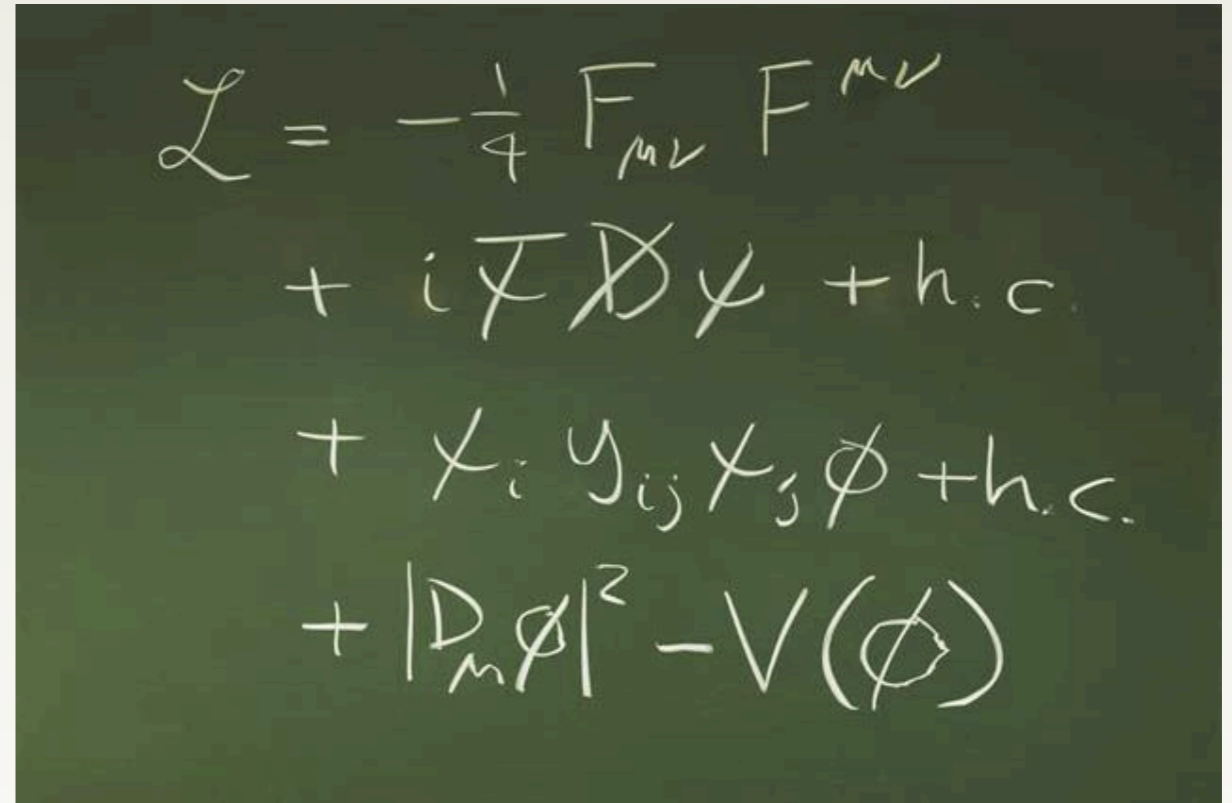 ℒ = -1/4 F_μν F^μν
+ i ψ̄ D̸ ψ + h.c.
+ ψ_i y_ij ψ_j φ + h.c.
+ |D_μ φ|² - V(φ)